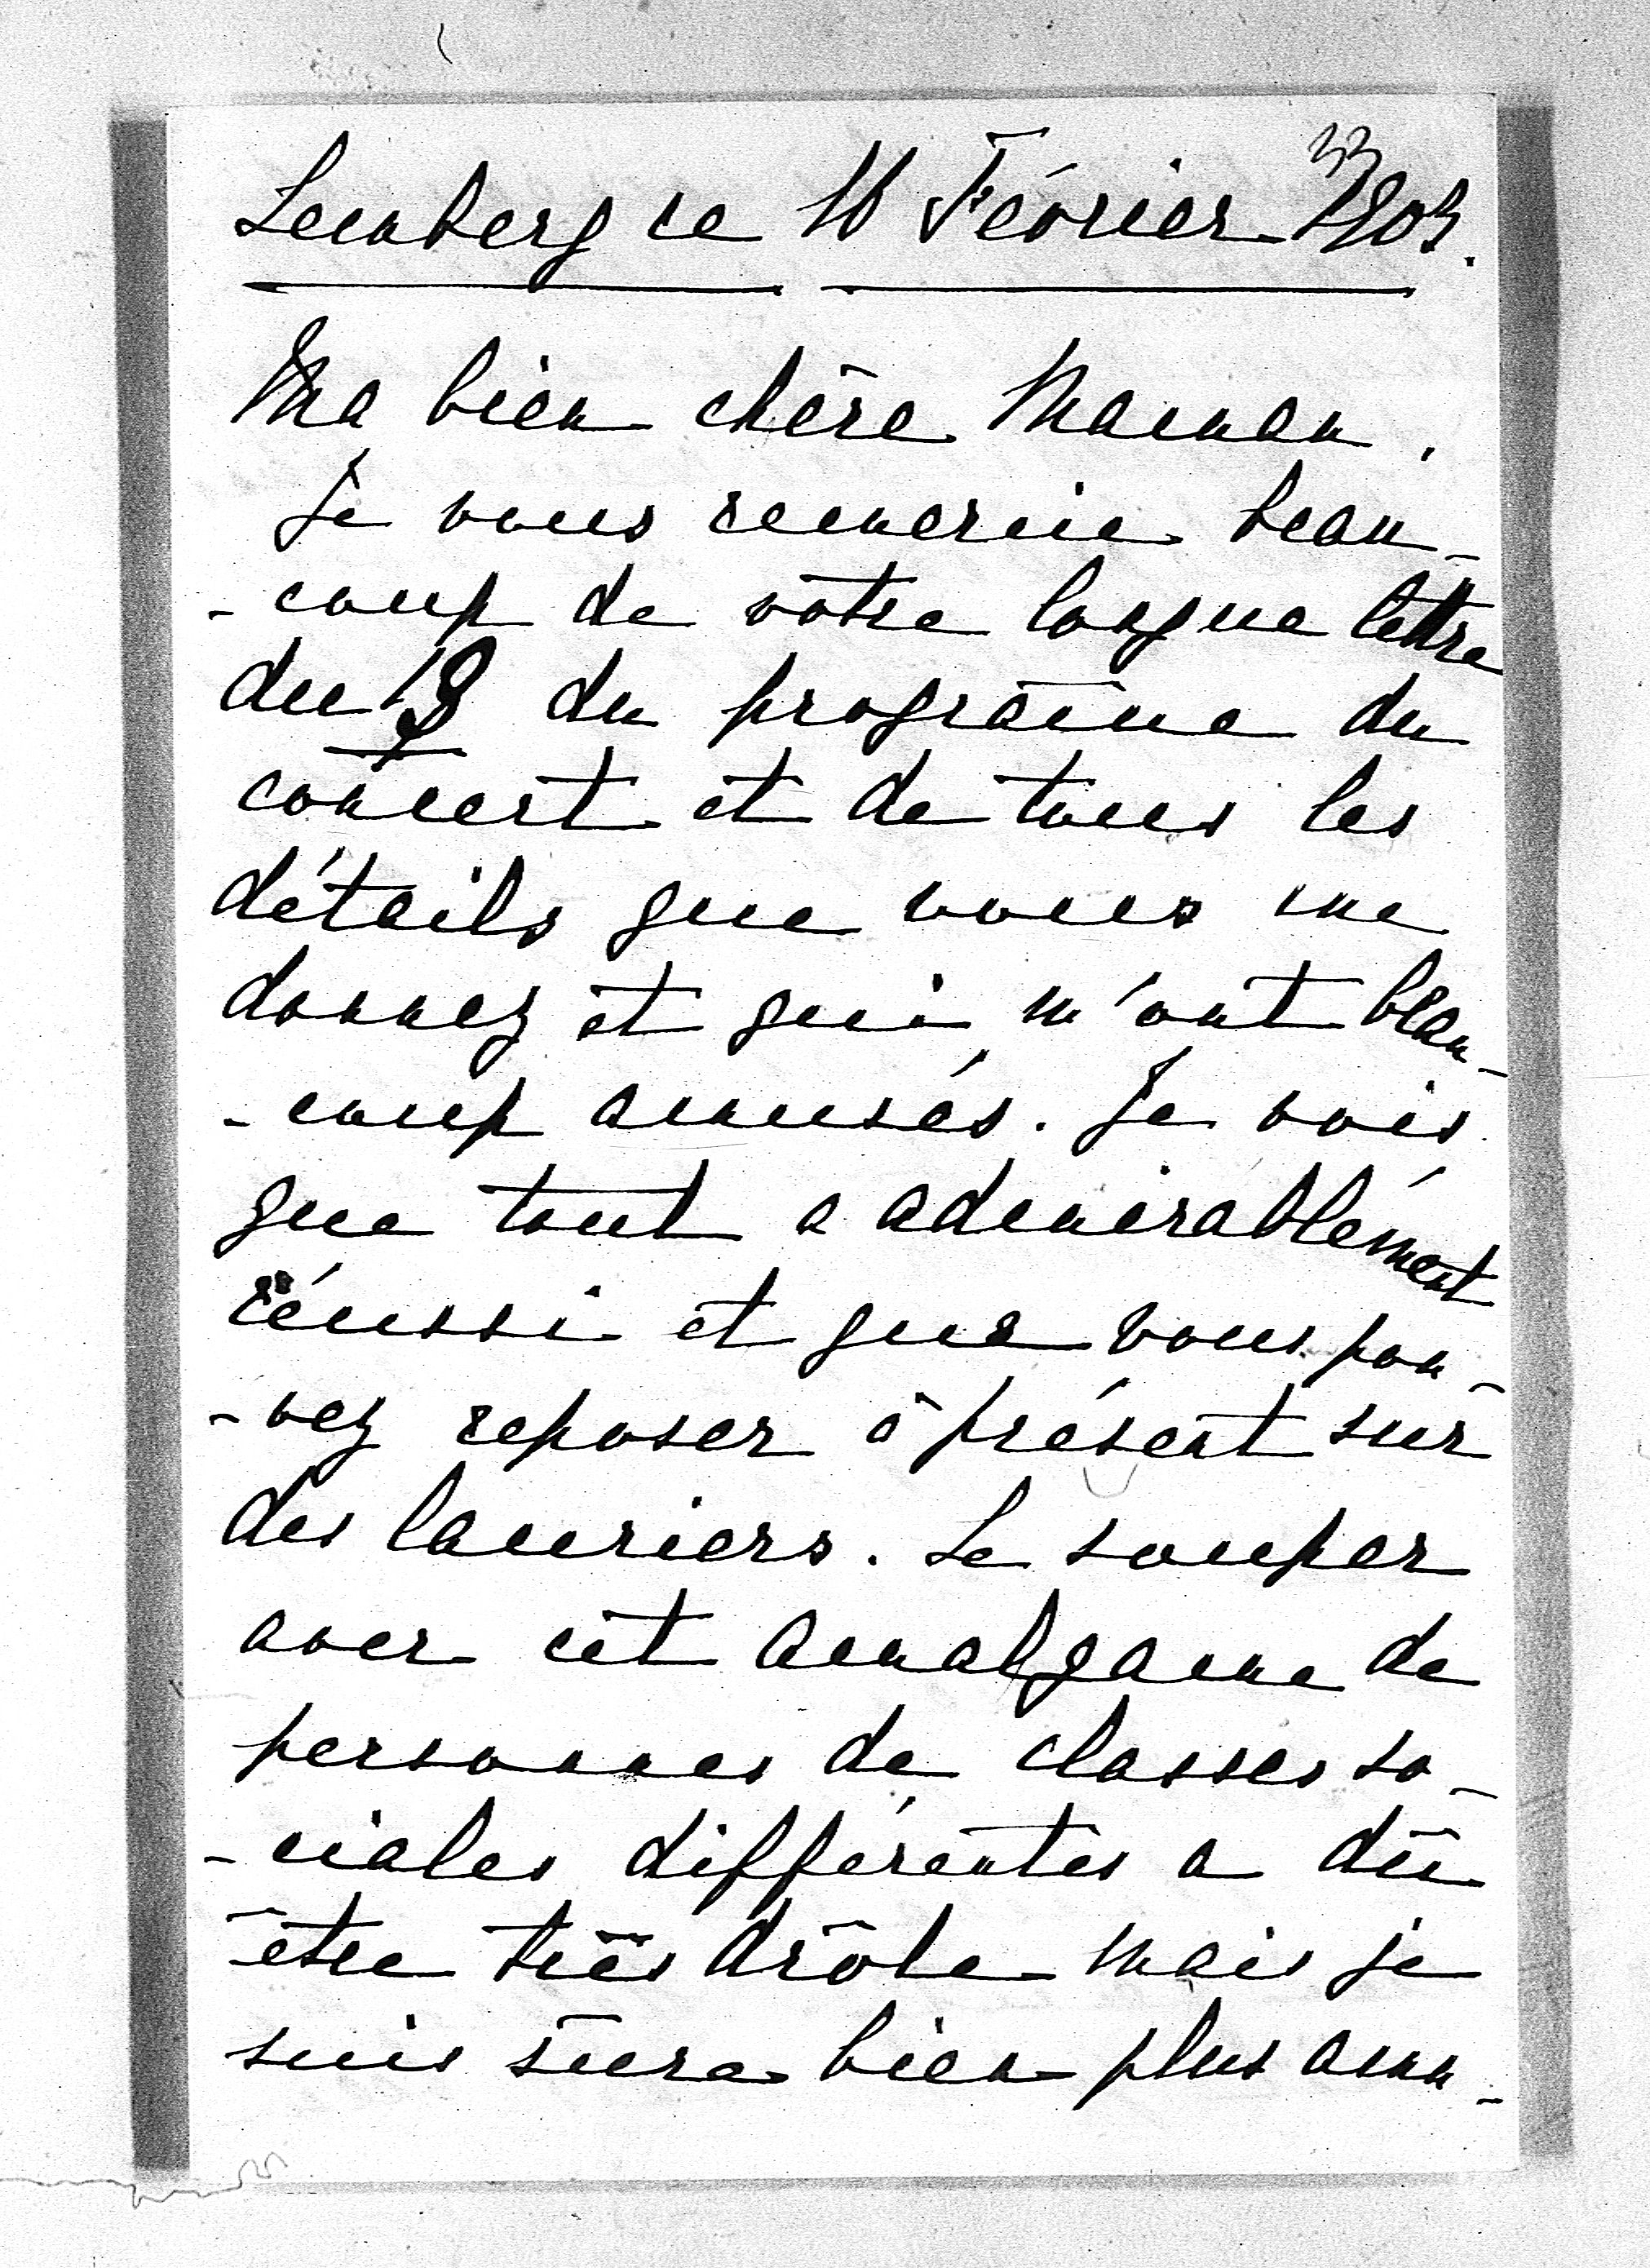 33
Lemberg ce 16 Février 1903.
Ma bien chère Maman,
Je vous remercie beau-
-coup de votre longue lettre
du du programe du
concert et de tous les
détails que vous me
donnez et qui m'ont beau-
-coup amusés. Je vois
que tout a admirablément
réussi et que vous pou-
-vez reposer à présent sur
des lauriers. Le souper
avec cet amalgame de
personnes de classes so-
-ciales différentes a dû
être très drôle mais je
suis sûre bien plus amu-